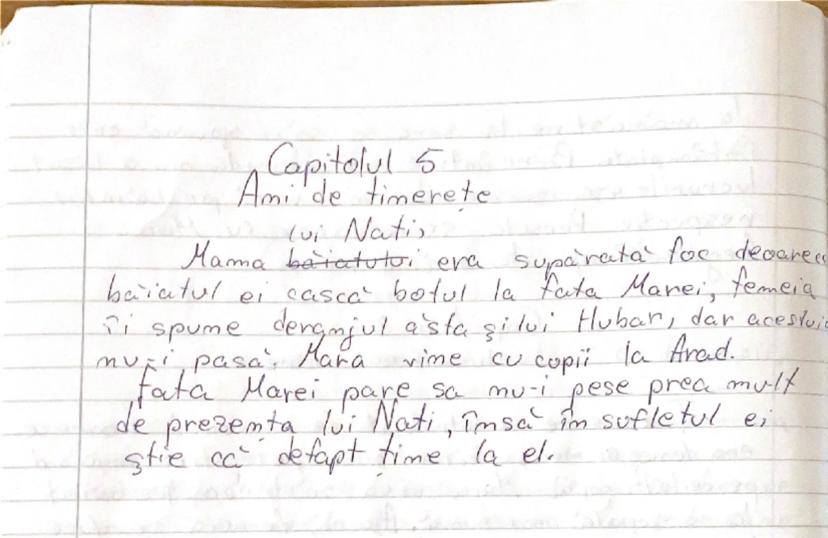 Capitolul 5
Ani de tinerețe
lui Nați,
Mama băiatului era supărată foc deoarece
băiatul ei cască botul la fata Marei, femeia
îi spune deranjul ăsta și lui Hubăr, dar acestuia
nu-i pasă. Mara vine cu copii la Arad.
fata Marei pare sa nu-i pese prea mult
de prezența lui Nați, însă în sufletul ei
știe că defapt tine la el.